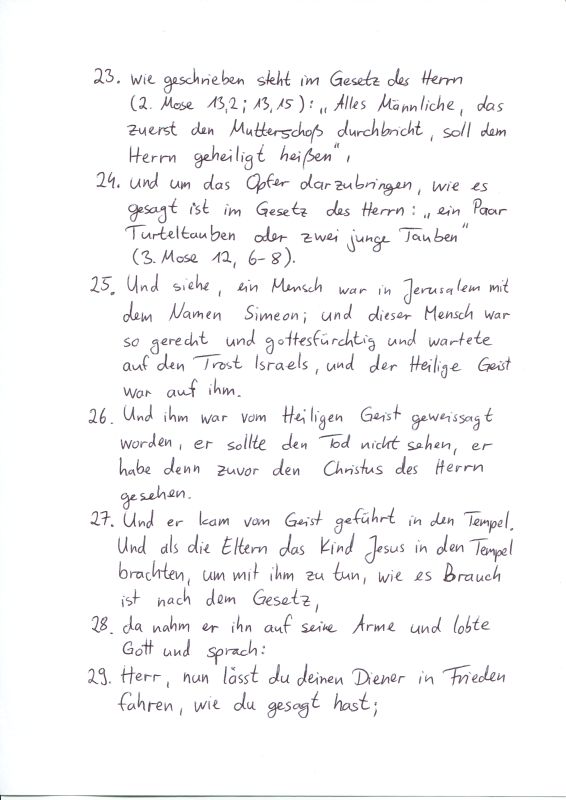 23. wie geschrieben steht im Gesetz des Herrn
(2. Mose 13,2; 13,15): „Alles Männliche, das
zuerst den Mutterschoß durchbricht, soll dem
Herrn geheiligt heißen",
24. und um das Opfer darzubringen, wie es
gesagt ist im Gesetz des Herrn: „ein Paar
Turteltauben oder zwei junge Tauben"
(3. Mose 12, 6-8).
25. Und siehe, ein Mensch war in Jerusalem mit
dem Namen Simeon; und dieser Mensch war
so gerecht und gottesfürchtig und wartete
auf den Trost Israels, und der Heilige Geist
war auf ihm.
26. Und ihm war vom Heiligen Geist geweissagt
worden, er sollte den Tod nicht sehen, er
habe denn zuvor den Christus des Herrn
gesehen.
27. Und er kam vom Geist geführt in den Tempel.
Und als die Eltern das Kind Jesus in den Tempel
brachten, um mit ihm zu tun, wie es Brauch
ist nach dem Gesetz,
28. da nahm er ihn auf seine Arme und lobte
Gott und sprach:
29. Herr, nun lässt du deinen Diener in Frieden
fahren, wie du gesagt hast;